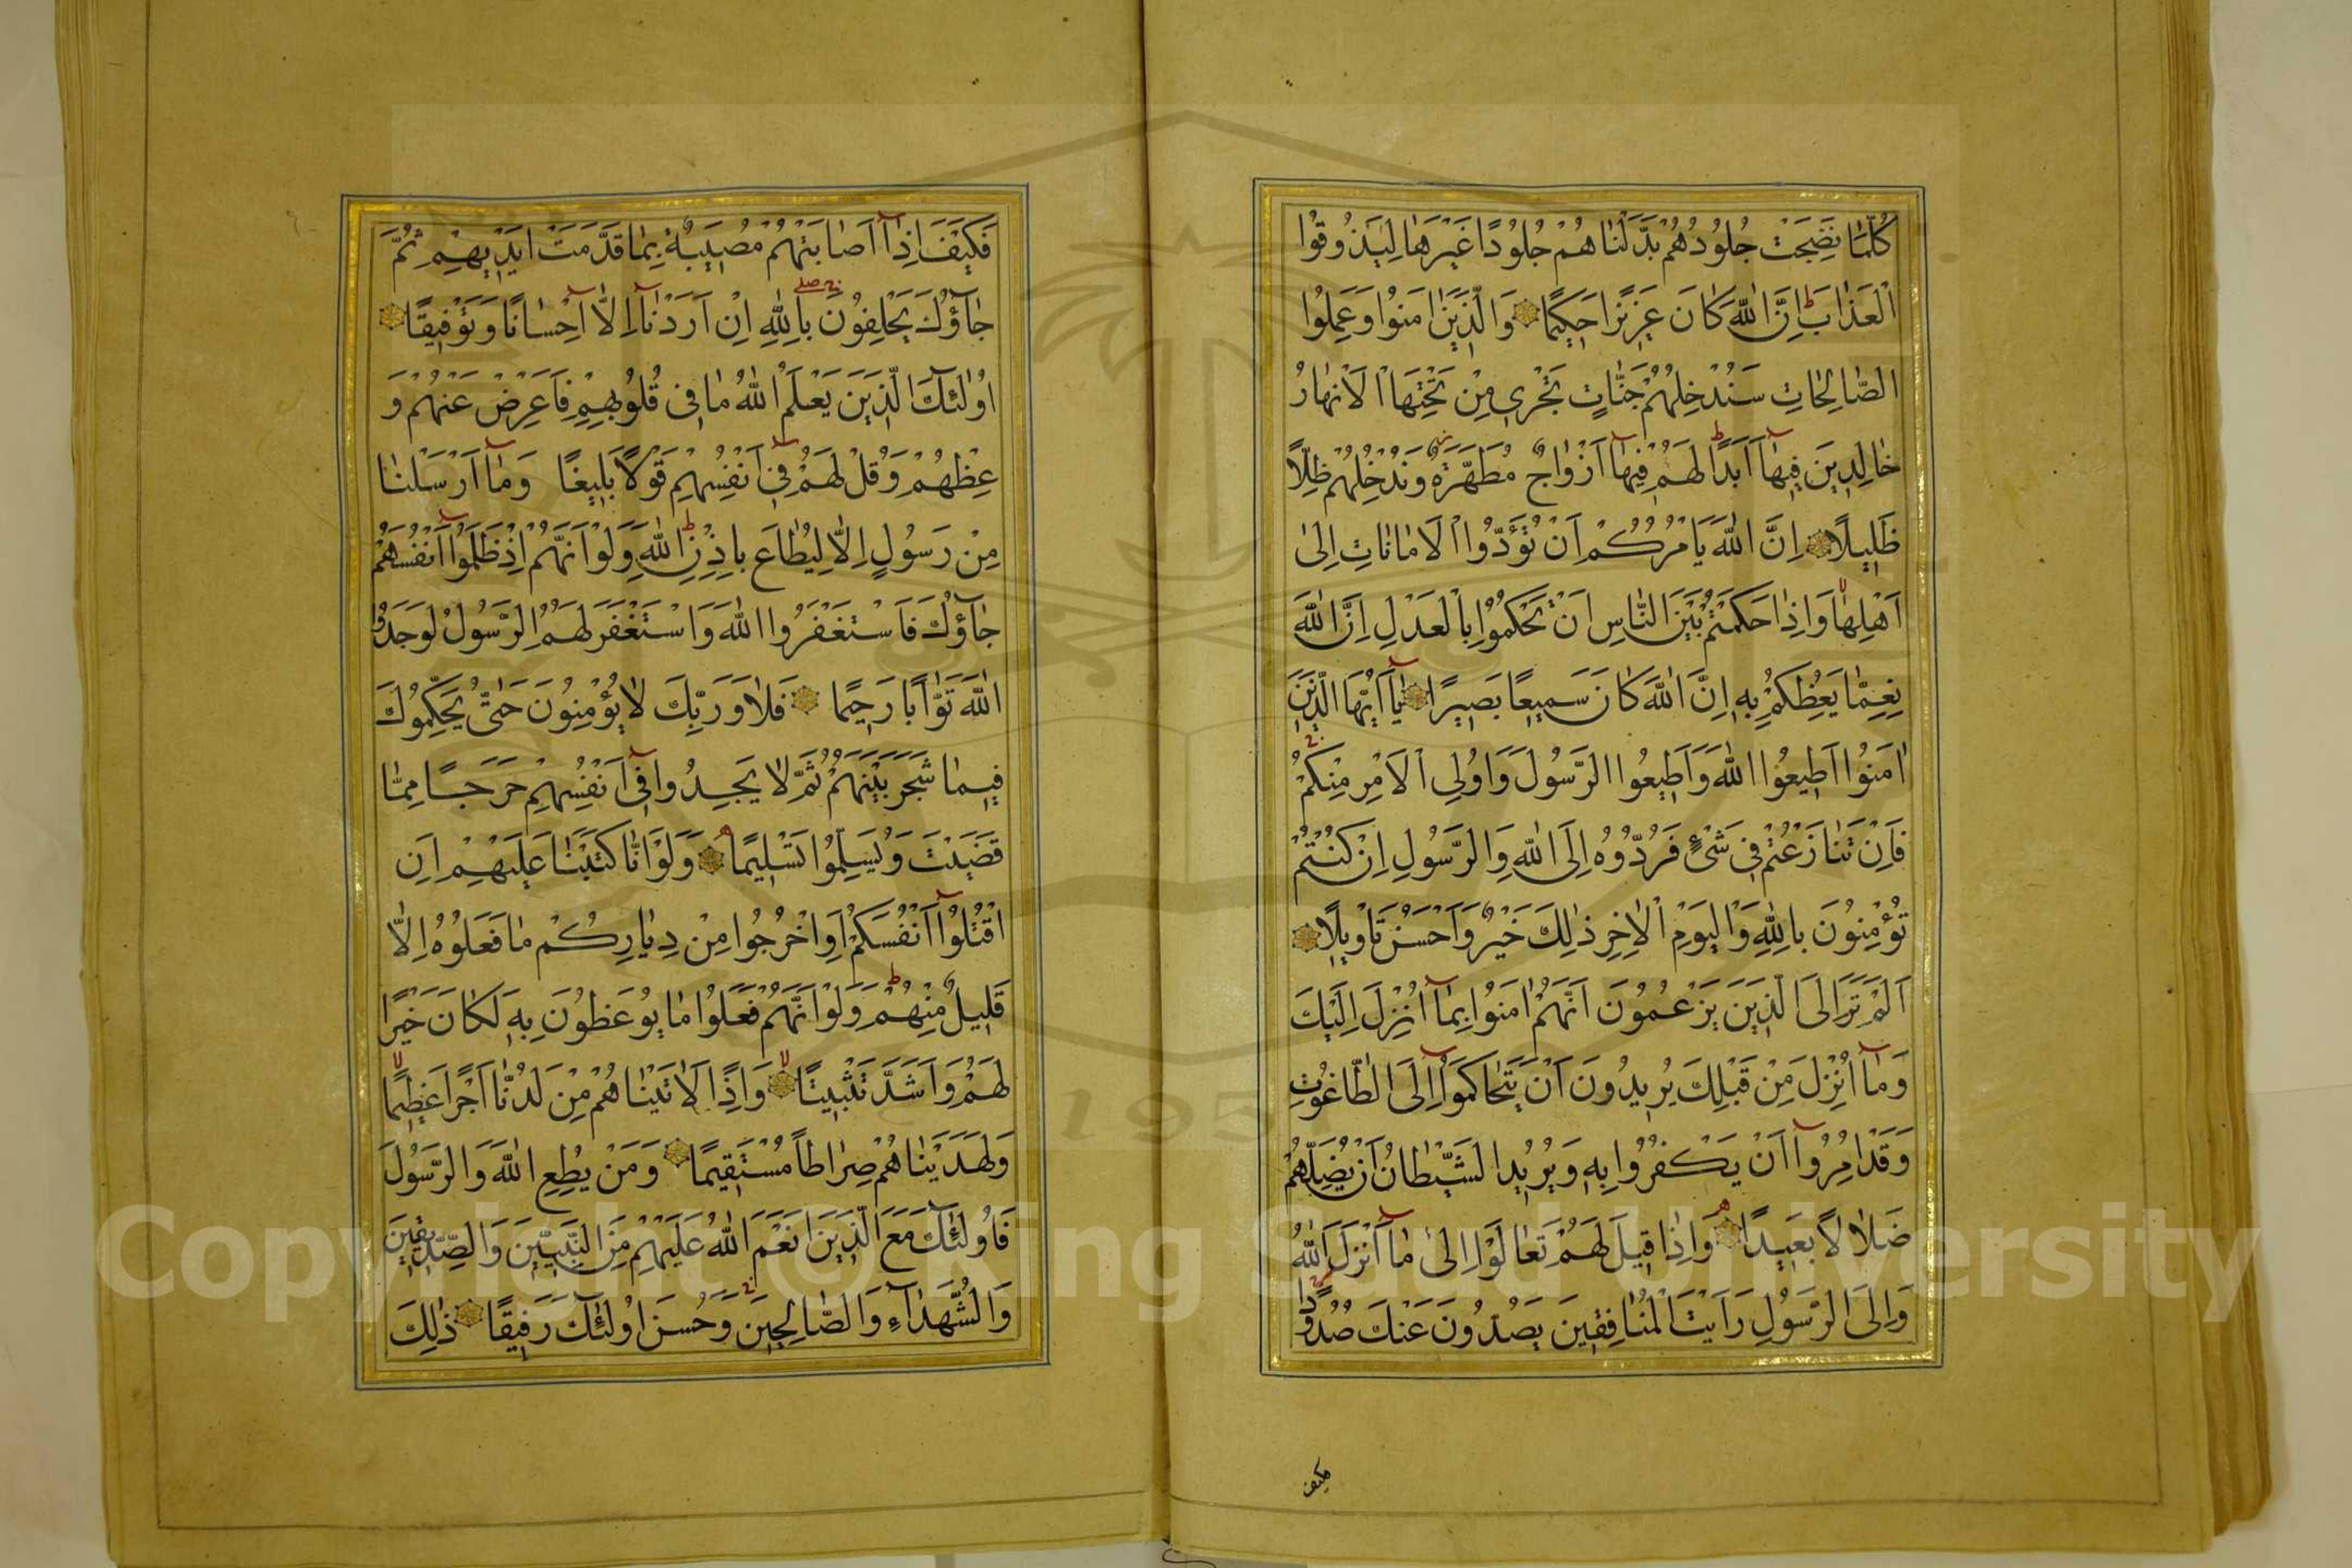 كُلَّمَا نَضِجَتْ جُلُودُهُمْ بَدَّلْنَاهُمْ جُلُودًا غَيْرَهَا لِيَذُوقُوا
الْعَذَابَ اِنَّ اللّٰهَ كَانَ عَزِيزًا حَكِيمًا وَالَّذِينَ اٰمَنُوا وَعَمِلُوا
الصَّالِحَاتِ سَنُدْخِلُهُمْ جَنَّاتٍ تَجْرِي مِنْ تَحْتِهَا الْاَنْهَارُ
خَالِدِينَ فِيهَآ اَبَدًا لَهُمْ فِيهَآ اَزْوَاجٌ مُطَهَّرَةٌ وَنُدْخِلُهُمْ ظِلًّا
ظَلِيلًا اِنَّ اللّٰهَ يَأْمُرُكُمْ اَنْ تُؤَدُّوا الْاَمَانَاتِ اِلٰى
اَهْلِهَا وَاِذَا حَكَمْتُمْ بَيْنَ النَّاسِ اَنْ تَحْكُمُوا بِالْعَدْلِ اِنَّ اللّٰهَ
نِعِمَّا يَعِظُكُمْ بِهِ اِنَّ اللّٰهَ كَانَ سَمِيعًا بَصِيرًا يَآ اَيُّهَا الَّذِينَ
اٰمَنُوا اَطِيعُوا اللّٰهَ وَاَطِيعُوا الرَّسُولَ وَاُولِي الْاَمْرِ مِنْكُمْ
فَاِنْ تَنَازَعْتُمْ فِي شَيْءٍ فَرُدُّوهُ اِلَى اللّٰهِ وَالرَّسُولِ اِنْ كُنْتُمْ
تُؤْمِنُونَ بِاللّٰهِ وَالْيَوْمِ الْاٰخِرِ ذٰلِكَ خَيْرٌ وَاَحْسَنُ تَأْوِيلًا
اَلَمْ تَرَ اِلَى الَّذِينَ يَزْعُمُونَ اَنَّهُمْ اٰمَنُوا بِمَآ اُنْزِلَ اِلَيْكَ
وَمَآ اُنْزِلَ مِنْ قَبْلِكَ يُرِيدُونَ اَنْ يَتَحَاكَمُوآ اِلَى الطَّاغُوتِ
وَقَدْ اُمِرُوآ اَنْ يَكْفُرُوا بِهِ وَيُرِيدُ الشَّيْطَانُ اَنْ يُضِلَّهُمْ
ضَلَالًا بَعِيدًا وَاِذَا قِيلَ لَهُمْ تَعَالَوْا اِلٰى مَآ اَنْزَلَ اللّٰهُ
وَاِلَى الرَّسُولِ رَاَيْتَ الْمُنَافِقِينَ يَصُدُّونَ عَنْكَ صُدُودًا
فكيف
فَكَيْفَ اِذَآ اَصَابَتْهُمْ مُصِيبَةٌ بِمَا قَدَّمَتْ اَيْدِيهِمْ ثُمَّ
جَآؤُكَ يَحْلِفُونَ بِاللّٰهِ اِنْ اَرَدْنَآ اِلَّآ اِحْسَانًا وَتَوْفِيقًا
اُولٰئِكَ الَّذِينَ يَعْلَمُ اللّٰهُ مَا فِي قُلُوبِهِمْ فَاَعْرِضْ عَنْهُمْ وَ
عِظْهُمْ وَقُلْ لَهُمْ فِي اَنْفُسِهِمْ قَوْلًا بَلِيغًا وَمَآ اَرْسَلْنَا
مِنْ رَسُولٍ اِلَّا لِيُطَاعَ بِاِذْنِ اللّٰهِ وَلَوْ اَنَّهُمْ اِذْ ظَلَمُوآ اَنْفُسَهُمْ
جَآؤُكَ فَاسْتَغْفَرُوا اللّٰهَ وَاسْتَغْفَرَ لَهُمُ الرَّسُولُ لَوَجَدُوا
اللّٰهَ تَوَّابًا رَحِيمًا فَلَا وَرَبِّكَ لَا يُؤْمِنُونَ حَتّٰى يُحَكِّمُوكَ
فِيمَا شَجَرَ بَيْنَهُمْ ثُمَّ لَا يَجِدُوا فِي اَنْفُسِهِمْ حَرَجًا مِمَّا
قَضَيْتَ وَيُسَلِّمُوا تَسْلِيمًا وَلَوْ اَنَّا كَتَبْنَا عَلَيْهِمْ اَنِ
اقْتُلُوآ اَنْفُسَكُمْ اَوِ اخْرُجُوا مِنْ دِيَارِكُمْ مَا فَعَلُوهُ اِلَّا
قَلِيلٌ مِنْهُمْ وَلَوْ اَنَّهُمْ فَعَلُوا مَا يُوعَظُونَ بِهِ لَكَانَ خَيْرًا
لَهُمْ وَاَشَدَّ تَثْبِيتًا وَاِذًا لَاٰتَيْنَاهُمْ مِنْ لَدُنَّا اَجْرًا عَظِيمًا
وَلَهَدَيْنَاهُمْ صِرَاطًا مُسْتَقِيمًا وَمَنْ يُطِعِ اللّٰهَ وَالرَّسُولَ
فَاُولٰئِكَ مَعَ الَّذِينَ اَنْعَمَ اللّٰهُ عَلَيْهِمْ مِنَ النَّبِيِّينَ وَالصِّدِّيقِينَ
وَالشُّهَدَآءِ وَالصَّالِحِينَ وَحَسُنَ اُولٰئِكَ رَفِيقًا ذٰلِكَ
Copyright © King Saud University
1957